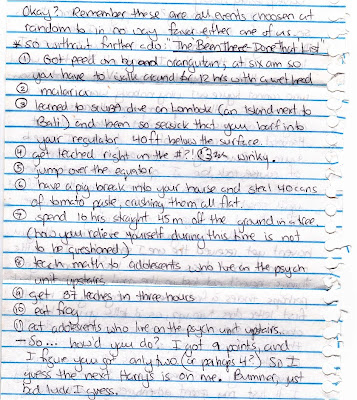 Okay? Remember these are all events choosen at
random to in no way favor either one of us.
* So without further ado: "The Been There-Done That List"
① Got peed on by and orangutan, at six am so
you have to walk around for 12 hrs with a wet head
② malaria
③ learned to scuba dive on Lombok (an island next to
Bali) and been so seasick that you barf into
your regulator 40ft below the surface.
④ got leched right in the #?!
winky.
⑤ jump over the equator.
⑥ have a pig break into your house and steal 40 cans
of tomato paste, crushing them all flat.
⑦ spend 16 hrs straight 45m off the ground in a tree.
(how you relieve yourself during this time is not
to be questioned.)
⑧ teach math to adolescents who live on the psych
unit upstairs
⑨ get 87 leches in three hours
⑩ eat frog
⑪ eat adolescents who live on the psych unit upstairs.
- So... how'd you do? I got 9 points, and
I figure you got only two (or perhaps 4?) So I
guess the next Harry's is on me. Bummer, just
bad luck I guess.